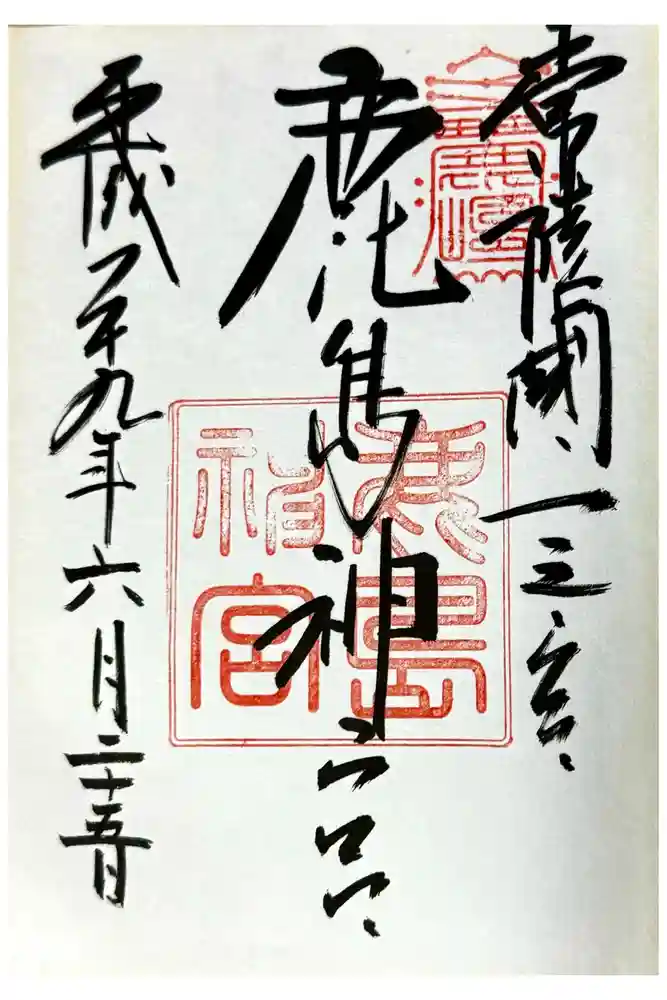 常陸國一之宮
鹿島神宮
鹿島
神宮
平成二十九年六月二十五日